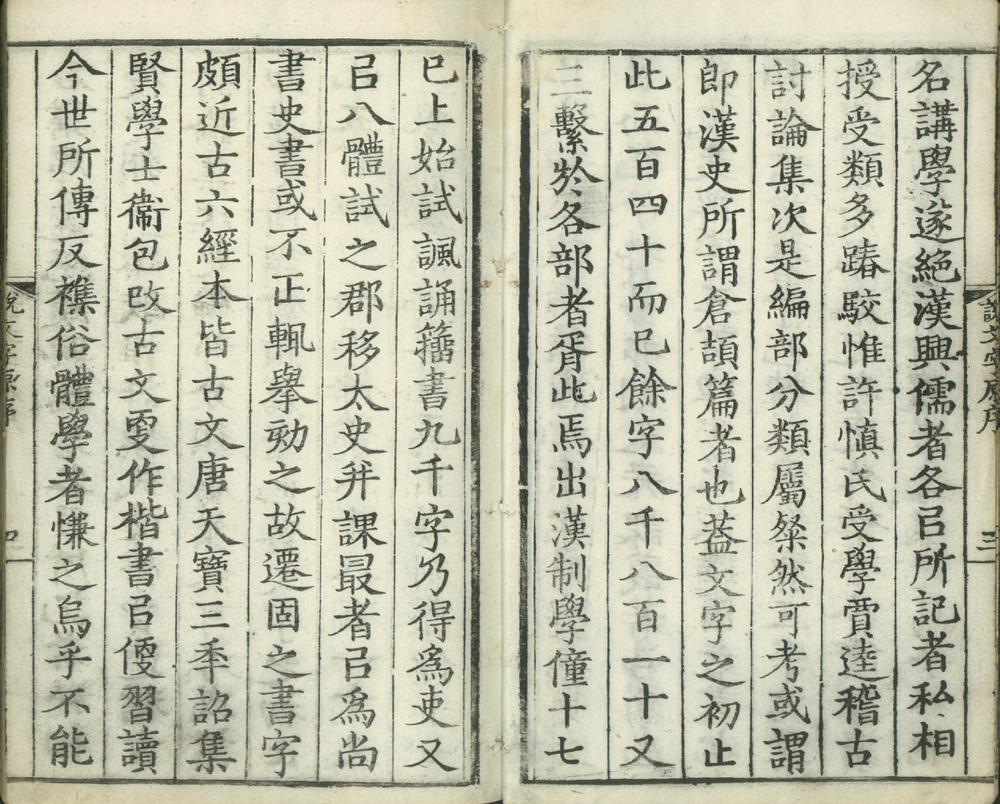 名講學遂絕漢興儒者各㠯所記者私相
授受類多踳駮惟許愼氏受學賈逵稽古
討論集次是編部分類屬粲然可考或謂
卽漢史所謂倉頡篇者也葢文字之初止
此五百四十而已餘字八千八百一十又
三繫於各部者胥此焉出漢制學僮十七
已上始試諷誦籒書九千字乃得爲吏又
㠯八體試之郡移太史并課最者㠯爲尚
書史書或不正輒舉劾之故遷固之書字
頗近古六經本皆古文唐天寶三秊詔集
賢學士衞包改古文更作楷書㠯傻習讀
今世所傳反襍俗體學者慊之烏乎不能
說文字原序 三
說文字原序 四